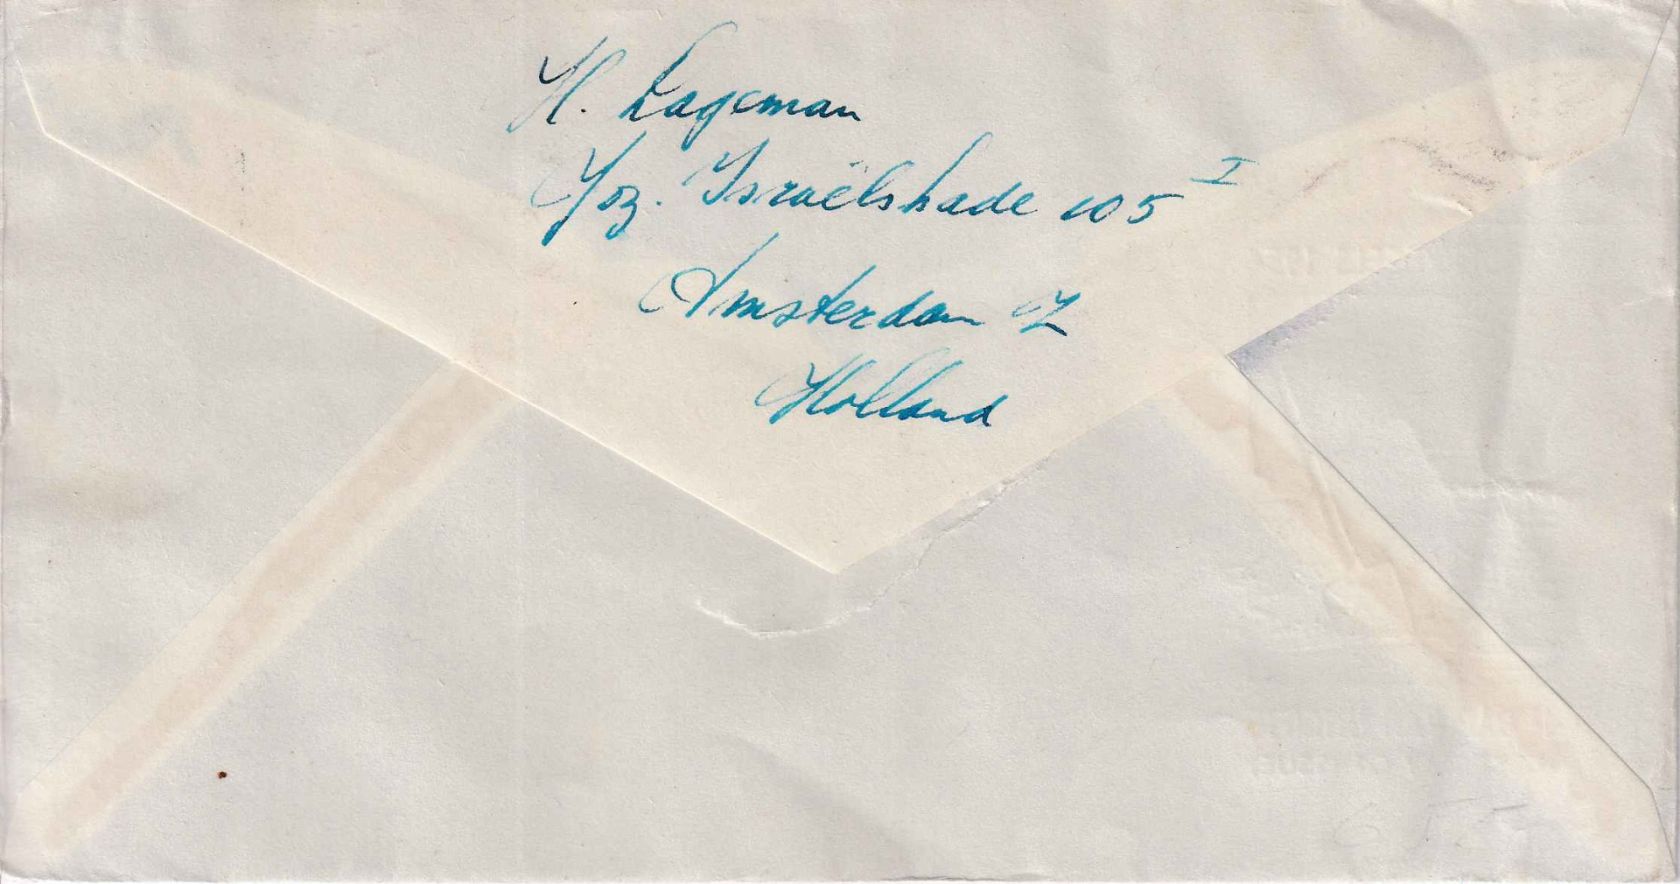 H. Lageman
Joz. Israëlskade 105 I
Amsterdam Z
Holland